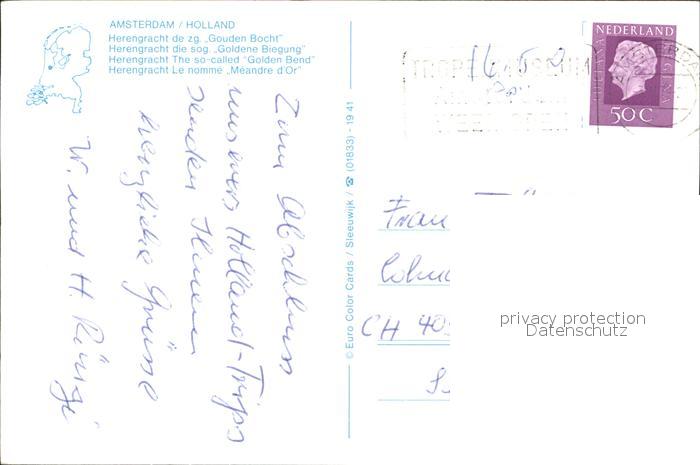 AMSTERDAM / HOLLAND
Herengracht de zg. „Gouden Bocht"
Herengracht die sog. „Goldene Biegung"
Herengracht The so-called "Golden Bend"
Herengracht Le nomme „Méandre d'Or"
Zum Abschluss
unseres Holland-Trips
senden Ihnen
herzliche Grüsse
W. und H.
© Euro Color Cards / Sleeuwijk / ☎ (01833) - 19 41
NEDERLAND
50 C
Frau
CH 40
privacy protection
Datenschutz